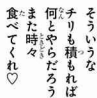 そういうな
チリも積もれば
何とやらだろう
また時々
食べてくれ♡